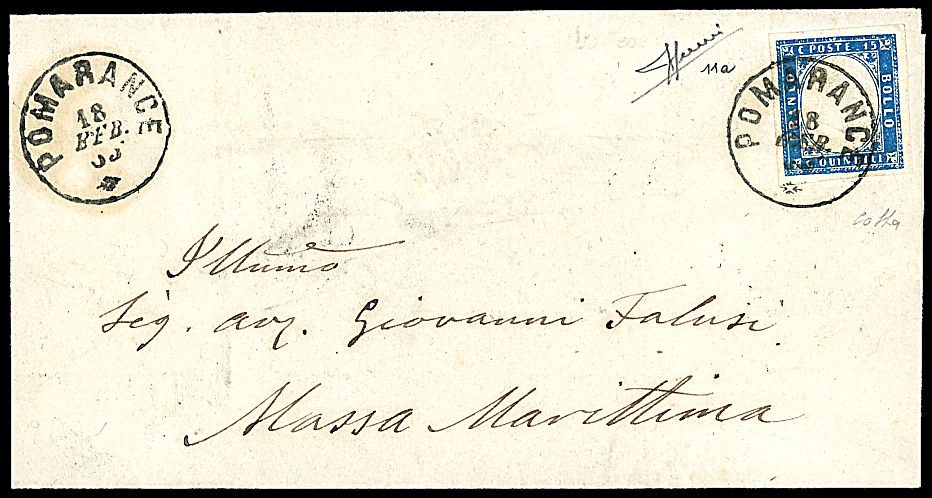 POMARANCE
18
FEB.
63
11a
C POSTE 15
FRANCO
BOLLO
QUINDICI
POMARANCE
18
FEB.
Costa
Illumo
Sig. avv. Giovanni Falusi
Massa Marittima